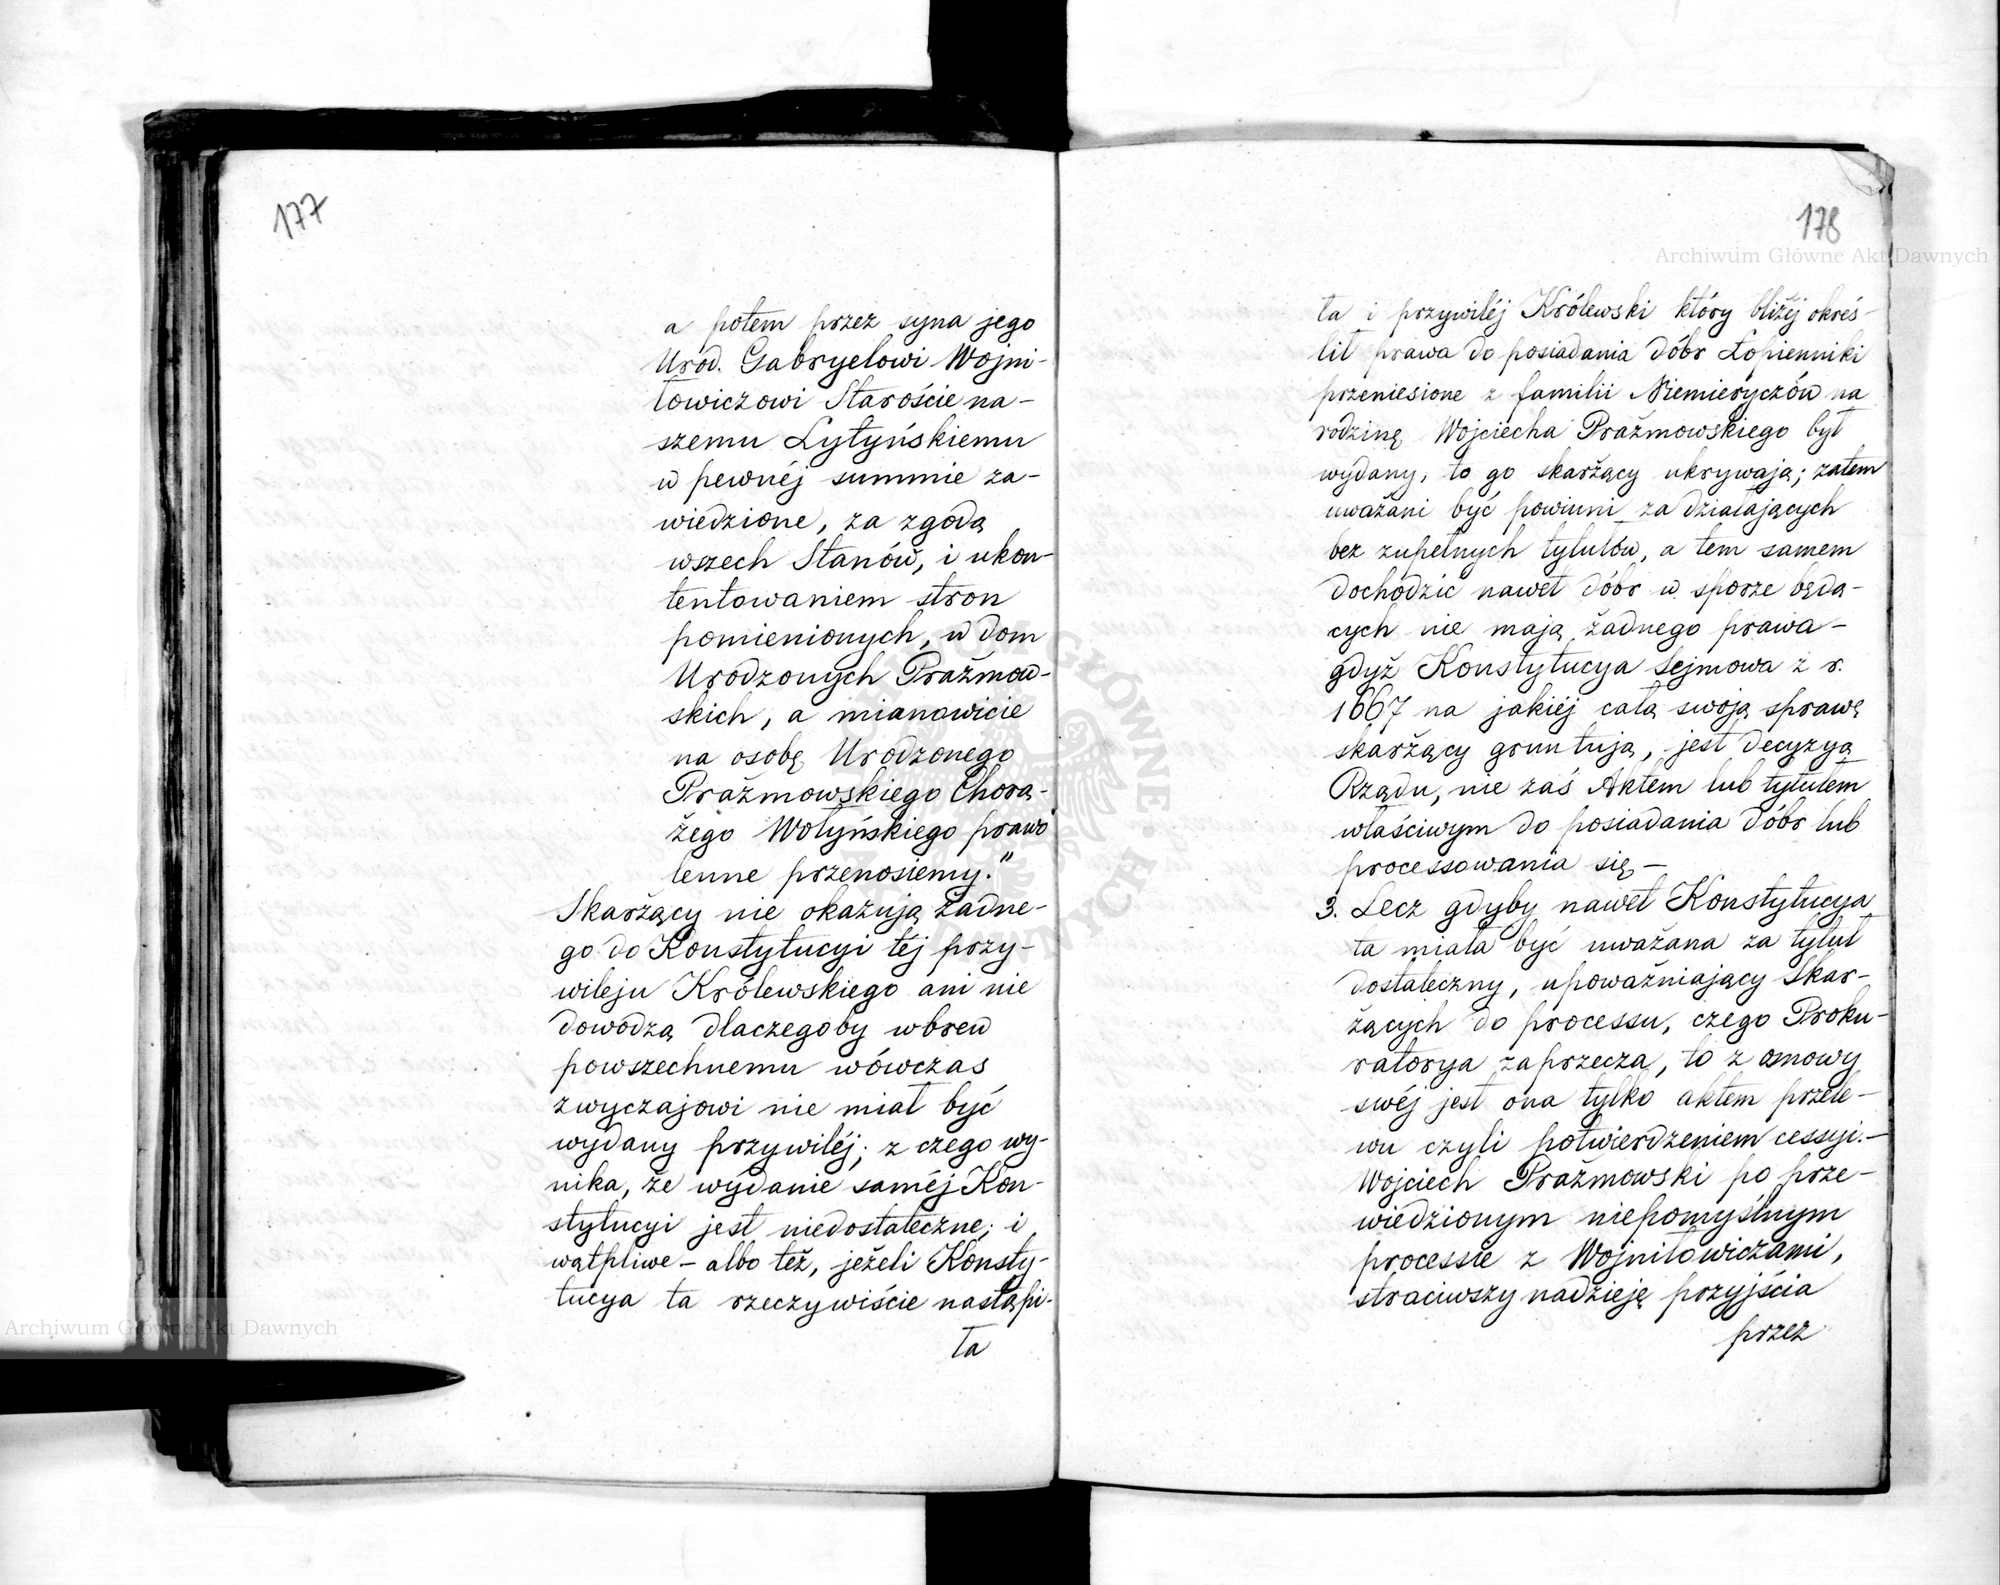 177
a potem przez syna jego
Uród. Gabryelowi Wojni-
łowiczowi Staroście na-
szemu Lytyńskiemu
w pewnéj summie za-
wiedzione, za zgodą
wszech Stanów, i ukon-
tentowaniem stron
pomienionych, w dom
Urodzonych Prażmow-
skich, a mianowicie
na osobę Urodzonego
Prażmowskiego Chorą-
żego Wołyńskiego prawo
lenne przenosiemy."
Skarżący nie okazują żadne-
go do Konstytucyi téj przy-
wileju Królewskiego ani nie
dowodzą dlaczegoby wbrew
powszechnemu wówczas
zwyczajowi nie miał być
wydany przywiléj; z czego wy-
nika, że wydanie saméj Kon-
stytucyi jest niedostateczne; i
wątpliwe – albo też, jeżeli Konsty-
tucya ta rzeczywiście nastąpi-
ła
178
ła i przywiléj Królewski który bliżéj okreś-
lił prawa do posiadania dóbr Łopienniki
przeniesione z familii Niemieryczów na
rodzinę Wojciecha Prażmowskiego był
wydany, to go skarżący ukrywają; zatem
uważani być powinni za działających
bez zupełnych tytułów, a tem samem
dochodzić nawet dóbr w sporze będą-
cych nie mają żadnego prawa –
gdyż Konstytucya Sejmowa z r.
1667 na jakiéj całą swoją sprawę
skarżący gruntują, jest decyzyą
Rządu, nie zaś Aktem lub tytułem
właściwym do posiadania dóbr lub
processowania się –
3. Lecz gdyby nawet Konstytucya
ta miała być uważana za tytuł
dostateczny, upoważniający Skar-
żących do processu, czego Proku-
ratorya zaprzecza, to z osnowy
swéj jest ona tylko aktem przele-
wu czyli potwierdzeniem cessyi. –
Wojciech Prażmowski po prze-
wiedzionym niepomyślnym
processie z Wojniłowiczami,
straciwszy nadzieję przyjścia
przez
Archiwum Główne Akt Dawnych
Archiwum Główne Akt Dawnych